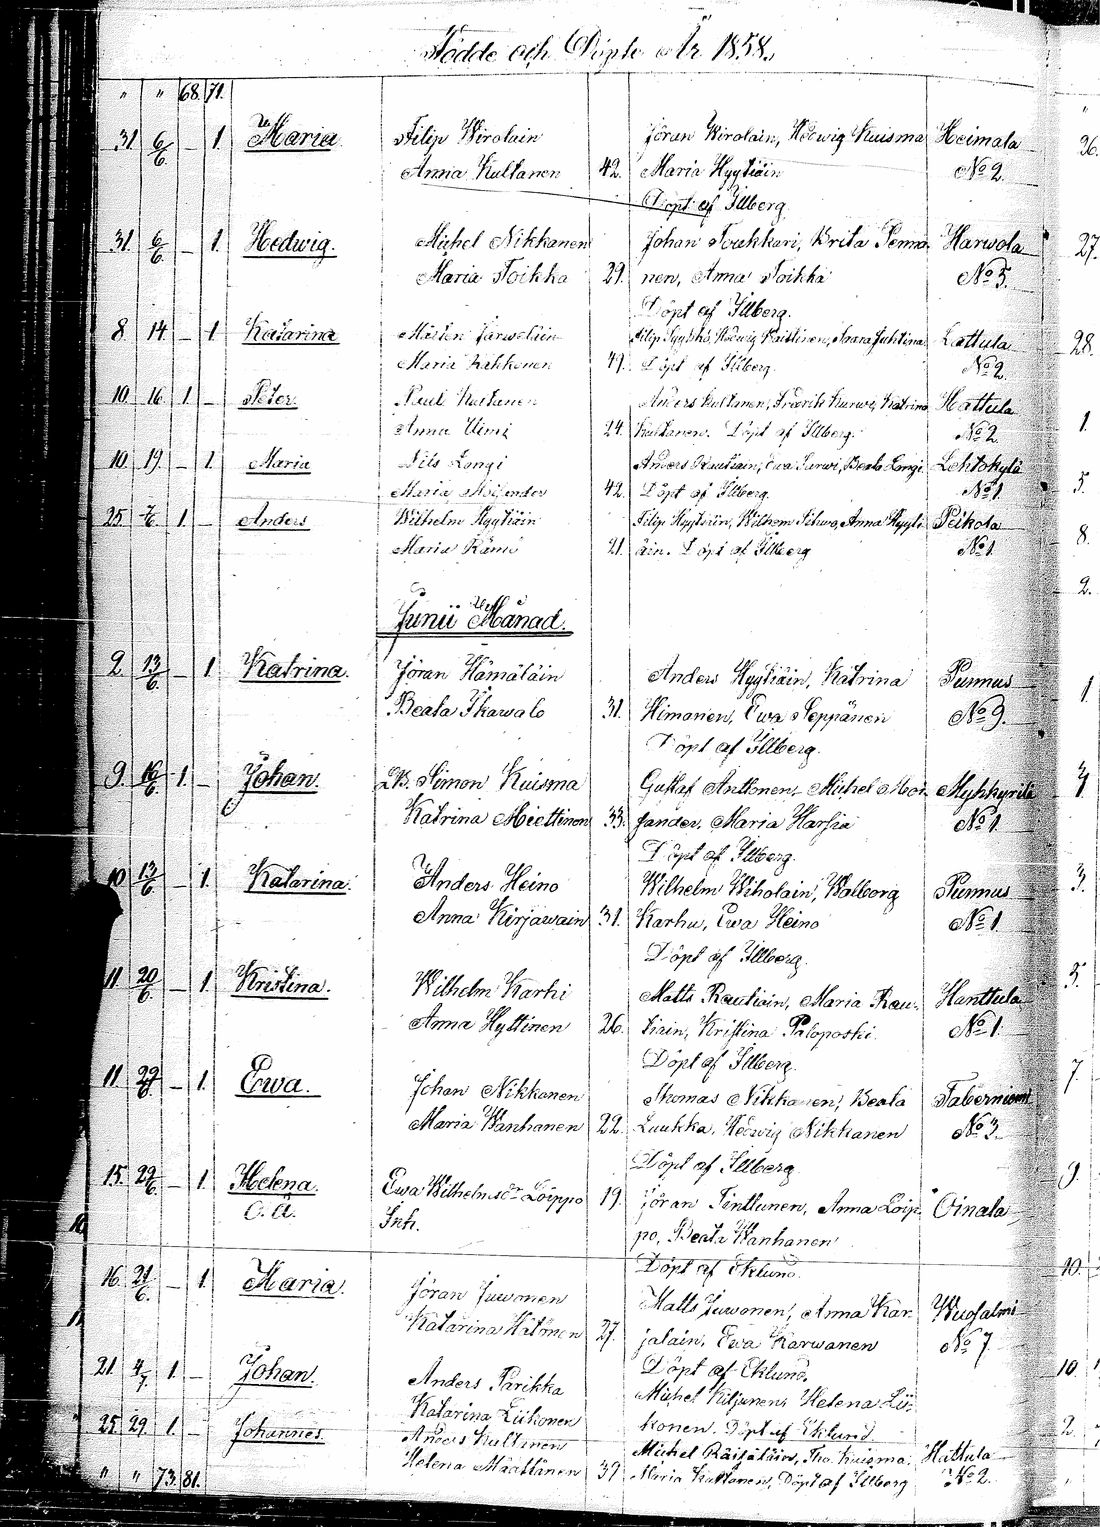 Födde och Döpte År 1858.
" " 68. 71.
31. 6/6 – 1. Maria. Filip Wirolain Jöran Wirolain, Hedwig Kuisma Heimala
Anna Kultanen 42. Maria Hyytiäin No 2.
Döpt af Illberg.
31. 6/6 – 1. Hedwig. Michel Nikkanen Johan Torakkari, Brita Penna- Harwola
Maria Toikka 29. nen, Anna Toikka No 5.
Döpt af Illberg.
8. 14. – 1. Katarina Mårten Järweläin Filip Hedwig Kristina Lattula
Maria Kekkonen 49. Döpt af Illberg. No 2.
10. 16. 1. – Peter. Paul Kultanen Anders Kultanen, Fredrik Kurwi, Katrina Hattula
Anna Uimi 24. Kultanen. Döpt af Illberg. No 2.
10. 19. – 1. Maria Nils Longi Anders Rautiain, Ewa Turwi, Beata Longi Lehtokylä
Maria Moisander 42. Döpt af Illberg. No 1.
25. 1. – Anders Wilhelm Hyytiäin Filip Hyytiäin, Wilhelm Anna Hyyti- Peikola
Maria Rämö 21. äin. Döpt af Illberg No 1.
Junii Månad.
2. 13/6 – 1. Katrina. Jöran Hämäläin Anders Hyytiäin, Katrina Punnus
Beata Ikawalo 31. Himanen, Ewa Seppänen No 9.
Döpt af Illberg.
9. 16/6 1. – Johan. Simon Kuisma Gustaf Anttonen, Michel Moi- Myhkyrilä
Katrina Miettinen 33. sander, Maria Harsia No 1.
Döpt af Illberg.
10 13/6 – 1. Katarina. Anders Heino Wilhelm Wiholain, Walborg Punnus
Anna Kirjawain 31. Karhu, Ewa Heino No 1.
Döpt af Illberg.
11 20/6 – 1. Kristina. Wilhelm Karhi Matts Rautiain, Maria Rau- Hanttula
Anna Hyttinen 26. tiain, Kristina Paloposki. No 1.
Döpt af Illberg.
11 29/6 – 1. Ewa. Johan Nikkanen Thomas Nikkanen, Beata Taberniemi
Maria Wanhanen 22. Luukka, Hedwig Nikkanen No 3.
Döpt af Illberg.
15. 29/6 – 1. Helena. Ewa Wilhelmsdr Loippo 19. Jöran Tinttunen, Anna Loip- Oinala
O. Ä. Inh. po, Beata Wanhanen
Döpt af Eklund.
16. 21/6 – 1. Maria. Jöran Juwonen Matts Juwonen, Anna Kar- Wuosalmi
Katarina Hatonen 27. jalain, Ewa Karwanen No 7
Döpt af Eklund.
21. 4/7 1. – Johan. Anders Parikka Michel Kiljunen, Helena Lii-
Katarina Liikonen konen. Döpt af Eklund
25. 29. 1. – Johannes. Anders Kultanen Michel Räisäläin, Tho. Kuisma, Hattula
Helena Määttänen 39 Maria Kultanen, Döpt af Illberg No 2.
" " 73. 81.